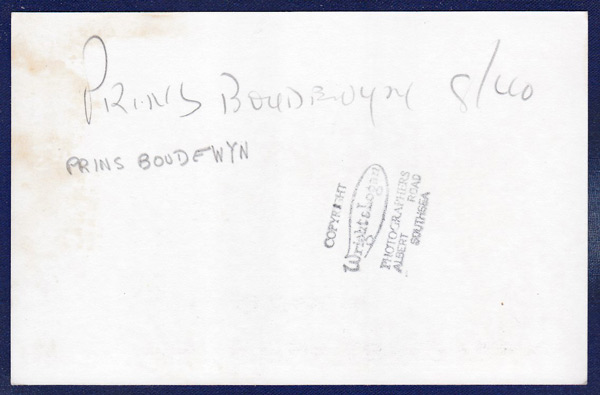 PRINS BOUDEWYN 8/40
PRINS BOUDEWYN
COPYRIGHT
Wright & Logan
PHOTOGRAPHERS
ALBERT ROAD
SOUTHSEA